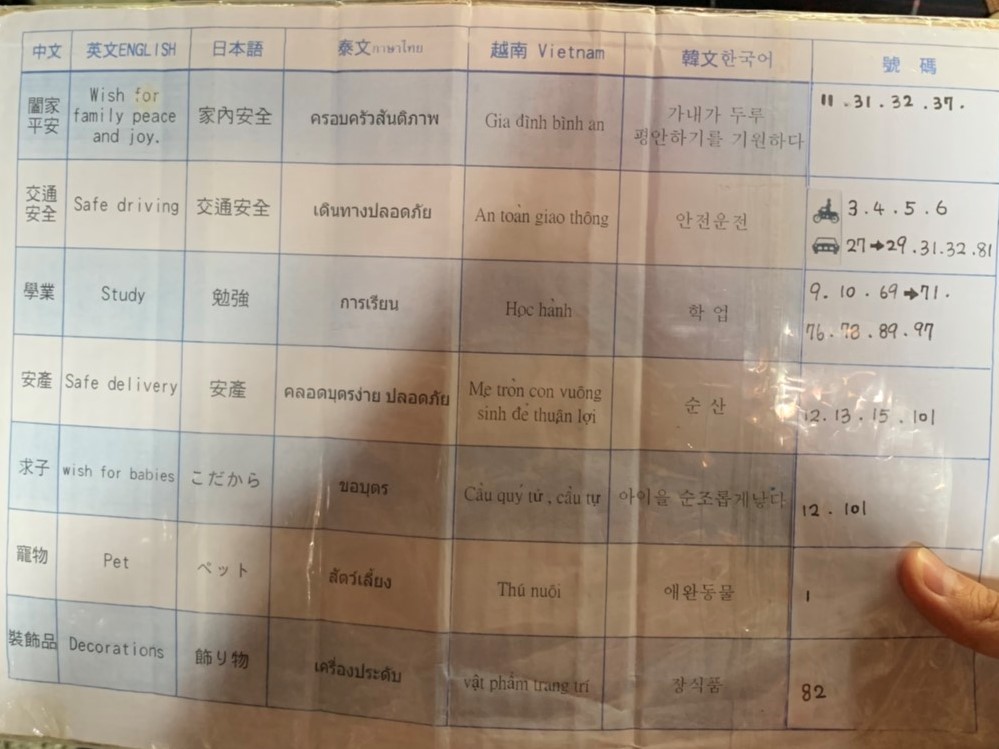 中文 英文ENGLISH 日本語 泰文ภาษาไทย 越南 Vietnam 韓文한국어 號碼
闔家平安 Wish for family peace and joy. 家內安全 ครอบครัวสันติภาพ Gia đình bình an 가내가 두루 평안하기를 기원하다 11.31.32.37.
交通安全 Safe driving 交通安全 เดินทางปลอดภัย An toàn giao thông 안전운전 3.4.5.6
27→29.31.32.81
學業 Study 勉強 การเรียน Học hành 학업 9.10.69→71.
76.78.89.97
安產 Safe delivery 安產 คลอดบุตรง่าย ปลอดภัย Mẹ tròn con vuông sinh đẻ thuận lợi 순산 12.13.15.101
求子 wish for babies こだから ขอบุตร Cầu quý tử, cầu tự 아이을 순조롭게낳다 12.101
寵物 Pet ペット สัตว์เลี้ยง Thú nuôi 애완동물 1
裝飾品 Decorations 飾り物 เครื่องประดับ vật phẩm trang trí 장식품 82